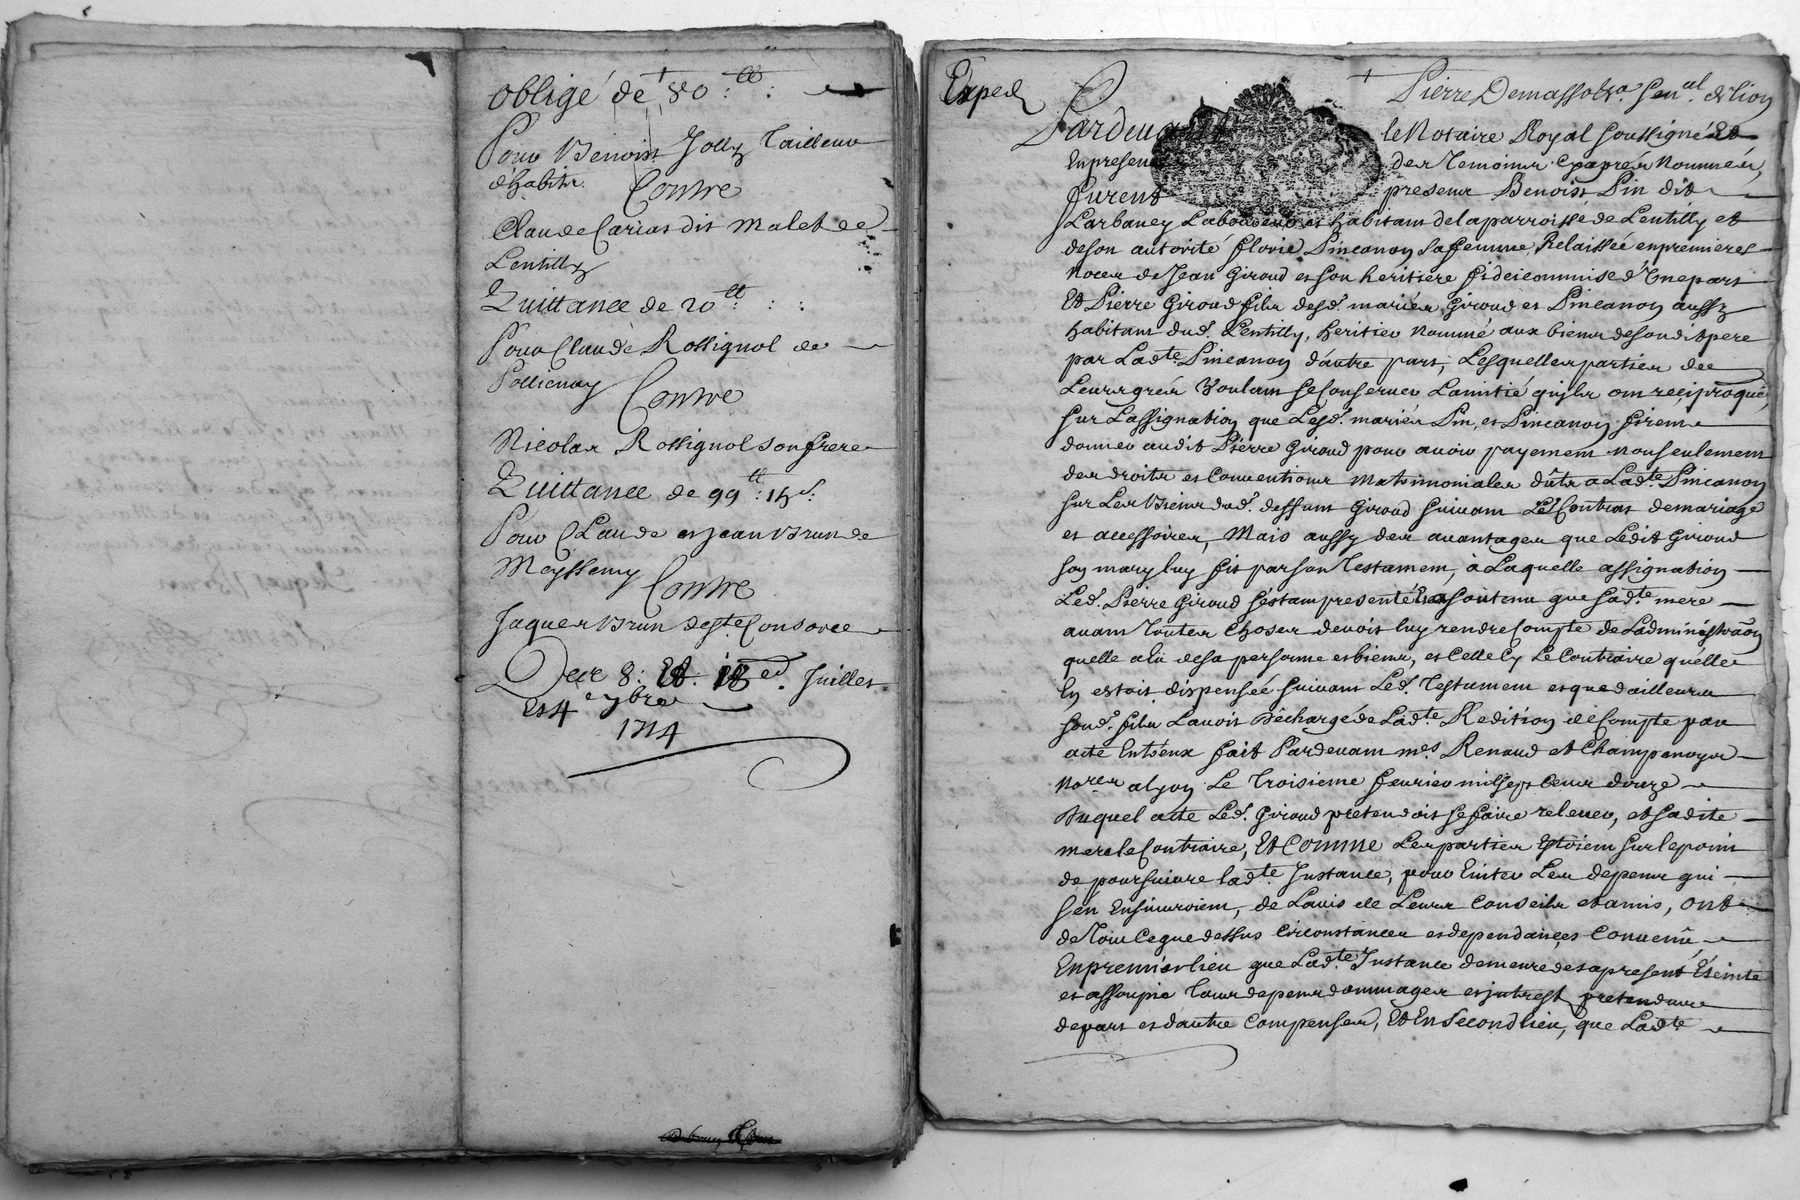 obligé de 80 ᵗᵗ
Pour Benoist Jolly Tailleur
d'habits. Contre
Claude Carias dit Malet de
Lentilly
Quittance de 20ᵗᵗ
Pour Claude Rossignol de
Pollienay
Contre
Nicolas Rossignol son frere
Quittance de 99ᵗᵗ: 15 s.
Pour Claude et Jean Brun de
Meyssemy
Contre
Jaques Brun de Ste Consorce
Des 8: Et 18ᵉᵈ. Juillet
Et 4ᵉ 9bre
1714
Exped
Pierre Demasso Sen.al de Lion
Pardevant le Notaire Royal soussigné Et
En presence des Temoins cy apres Nommés,
Furent presens Benoist Pin dit
Larbaney Laboureur et habitant de la parroisse de Lentilly et
de son autorité florie Pincanon sa femme, Relaissée en premieres
Noces de Jean Giroud et son heritiere fideicommise d'Une part
Et Pierre Giroud fils desd. mariés Giroud et Pincanon aussy
habitant dud. Lentilly, heritier Nommé aux biens de sondit pere
par Ladte. Pincanon d'autre part, Lesquelles parties de
Leurs grés Voulant se Conserver L'amitié qu'ils ont reciproque,
sur L'assignation que Lesd. mariés Pin, et Pincanon firent
donner audit Pierre Giroud pour avoir payement non seulement
des droits et Conventions Matrimoniales dûts a Ladte. Pincanon
sur Les Biens dud. deffunt Giroud suivant Le Contrat de mariage
et accessoires, Mais aussy des avantages que Ledit Giroud
son mary luy fit par son Testament, à Laquelle assignation
Led. Pierre Giroud s'estant presenté soutenu que sadte. mere
avant Toutes Choses devoit luy rendre Compte de L'administraõn
quelle a Eü de sa personne et biens, et Celle Cy Le Contraire qu'elle
En estoit dispensée suivant Led. Testament et que d'ailleurs
sond. fils L'avoit Dêchargé de Ladte. Redition de Compte par
acte Entreux fait Pardevant mes Renaud et Champenoys
Nores a Lyon Le Troisieme fevrier mil sept Cens douze
Duquel acte Led. Giroud pretendoit se faire relever, et sadite
mere le Contraire, Et Comme Les parties Estoient sur le point
de poursuivre ladte. Instance, pour Eviter Les depens qui
s'en Ensuivroient, de L'avis de Leurs Conseils et amis, Ont
de Tout Ce que dessus Circonstances et dependances Convenû
En premier lieu que Ladte. Instance demeure des a present Éteinte
et assoupie Tous depens dommages et intrest pretendus
de part et d'autre Compensés, Et En second lieu, que Ladte.